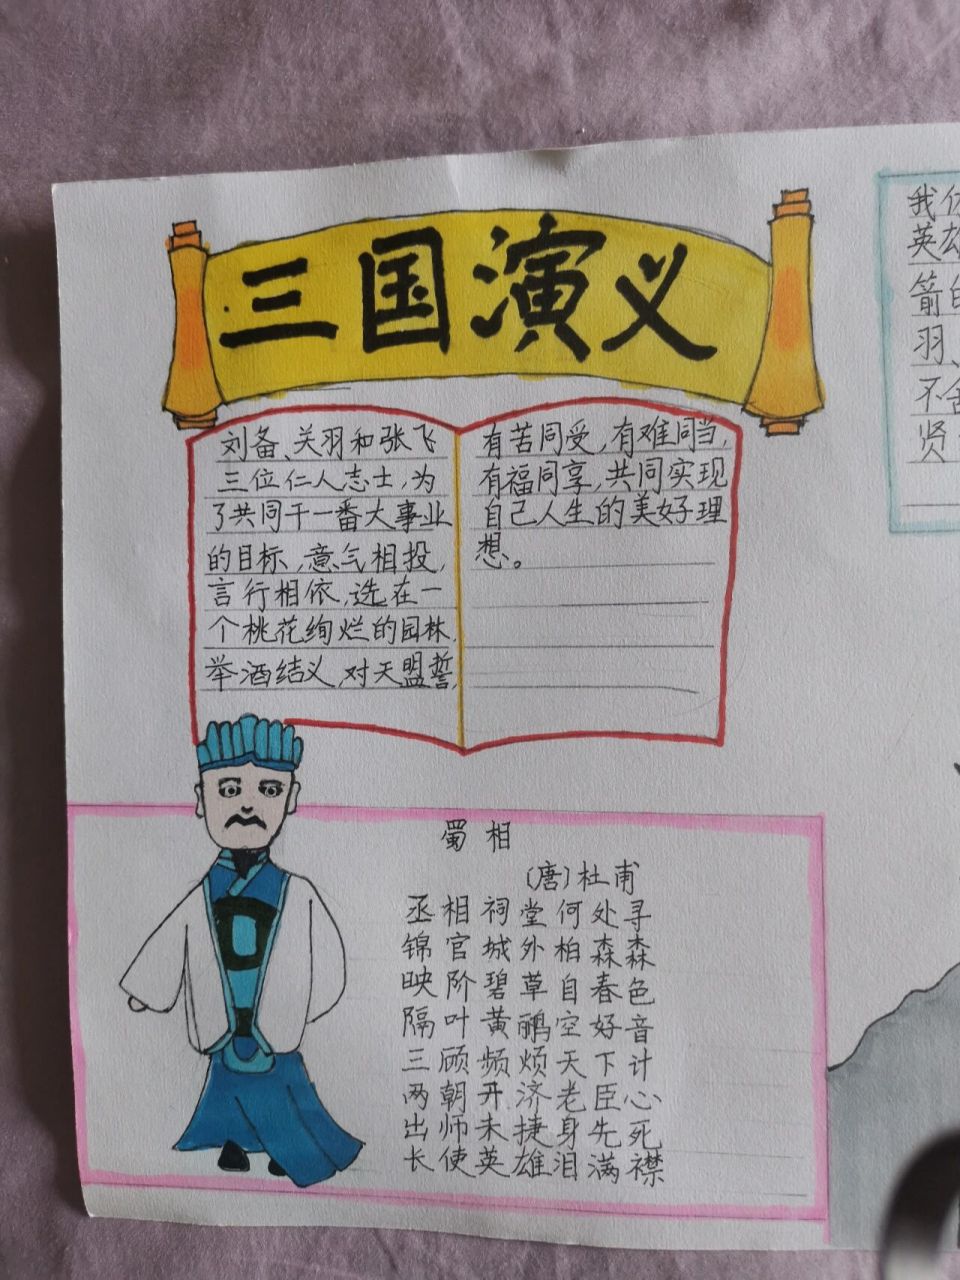 三国演义
刘备、关羽和张飞
三位仁人志士,为
了共同干一番大事业
的目标,意气相投,
言行相依,选在一
个桃花绚烂的园林,
举酒结义,对天盟誓,
有苦同受,有难同当,
有福同享,共同实现
自己人生的美好理
想。
蜀相
(唐)杜甫
丞相祠堂何处寻
锦官城外柏森森
映阶碧草自春色
隔叶黄鹂空好音
三顾频烦天下计
两朝开济老臣心
出师未捷身先死
长使英雄泪满襟
我
英雄
箭
羽、
不舍
贤